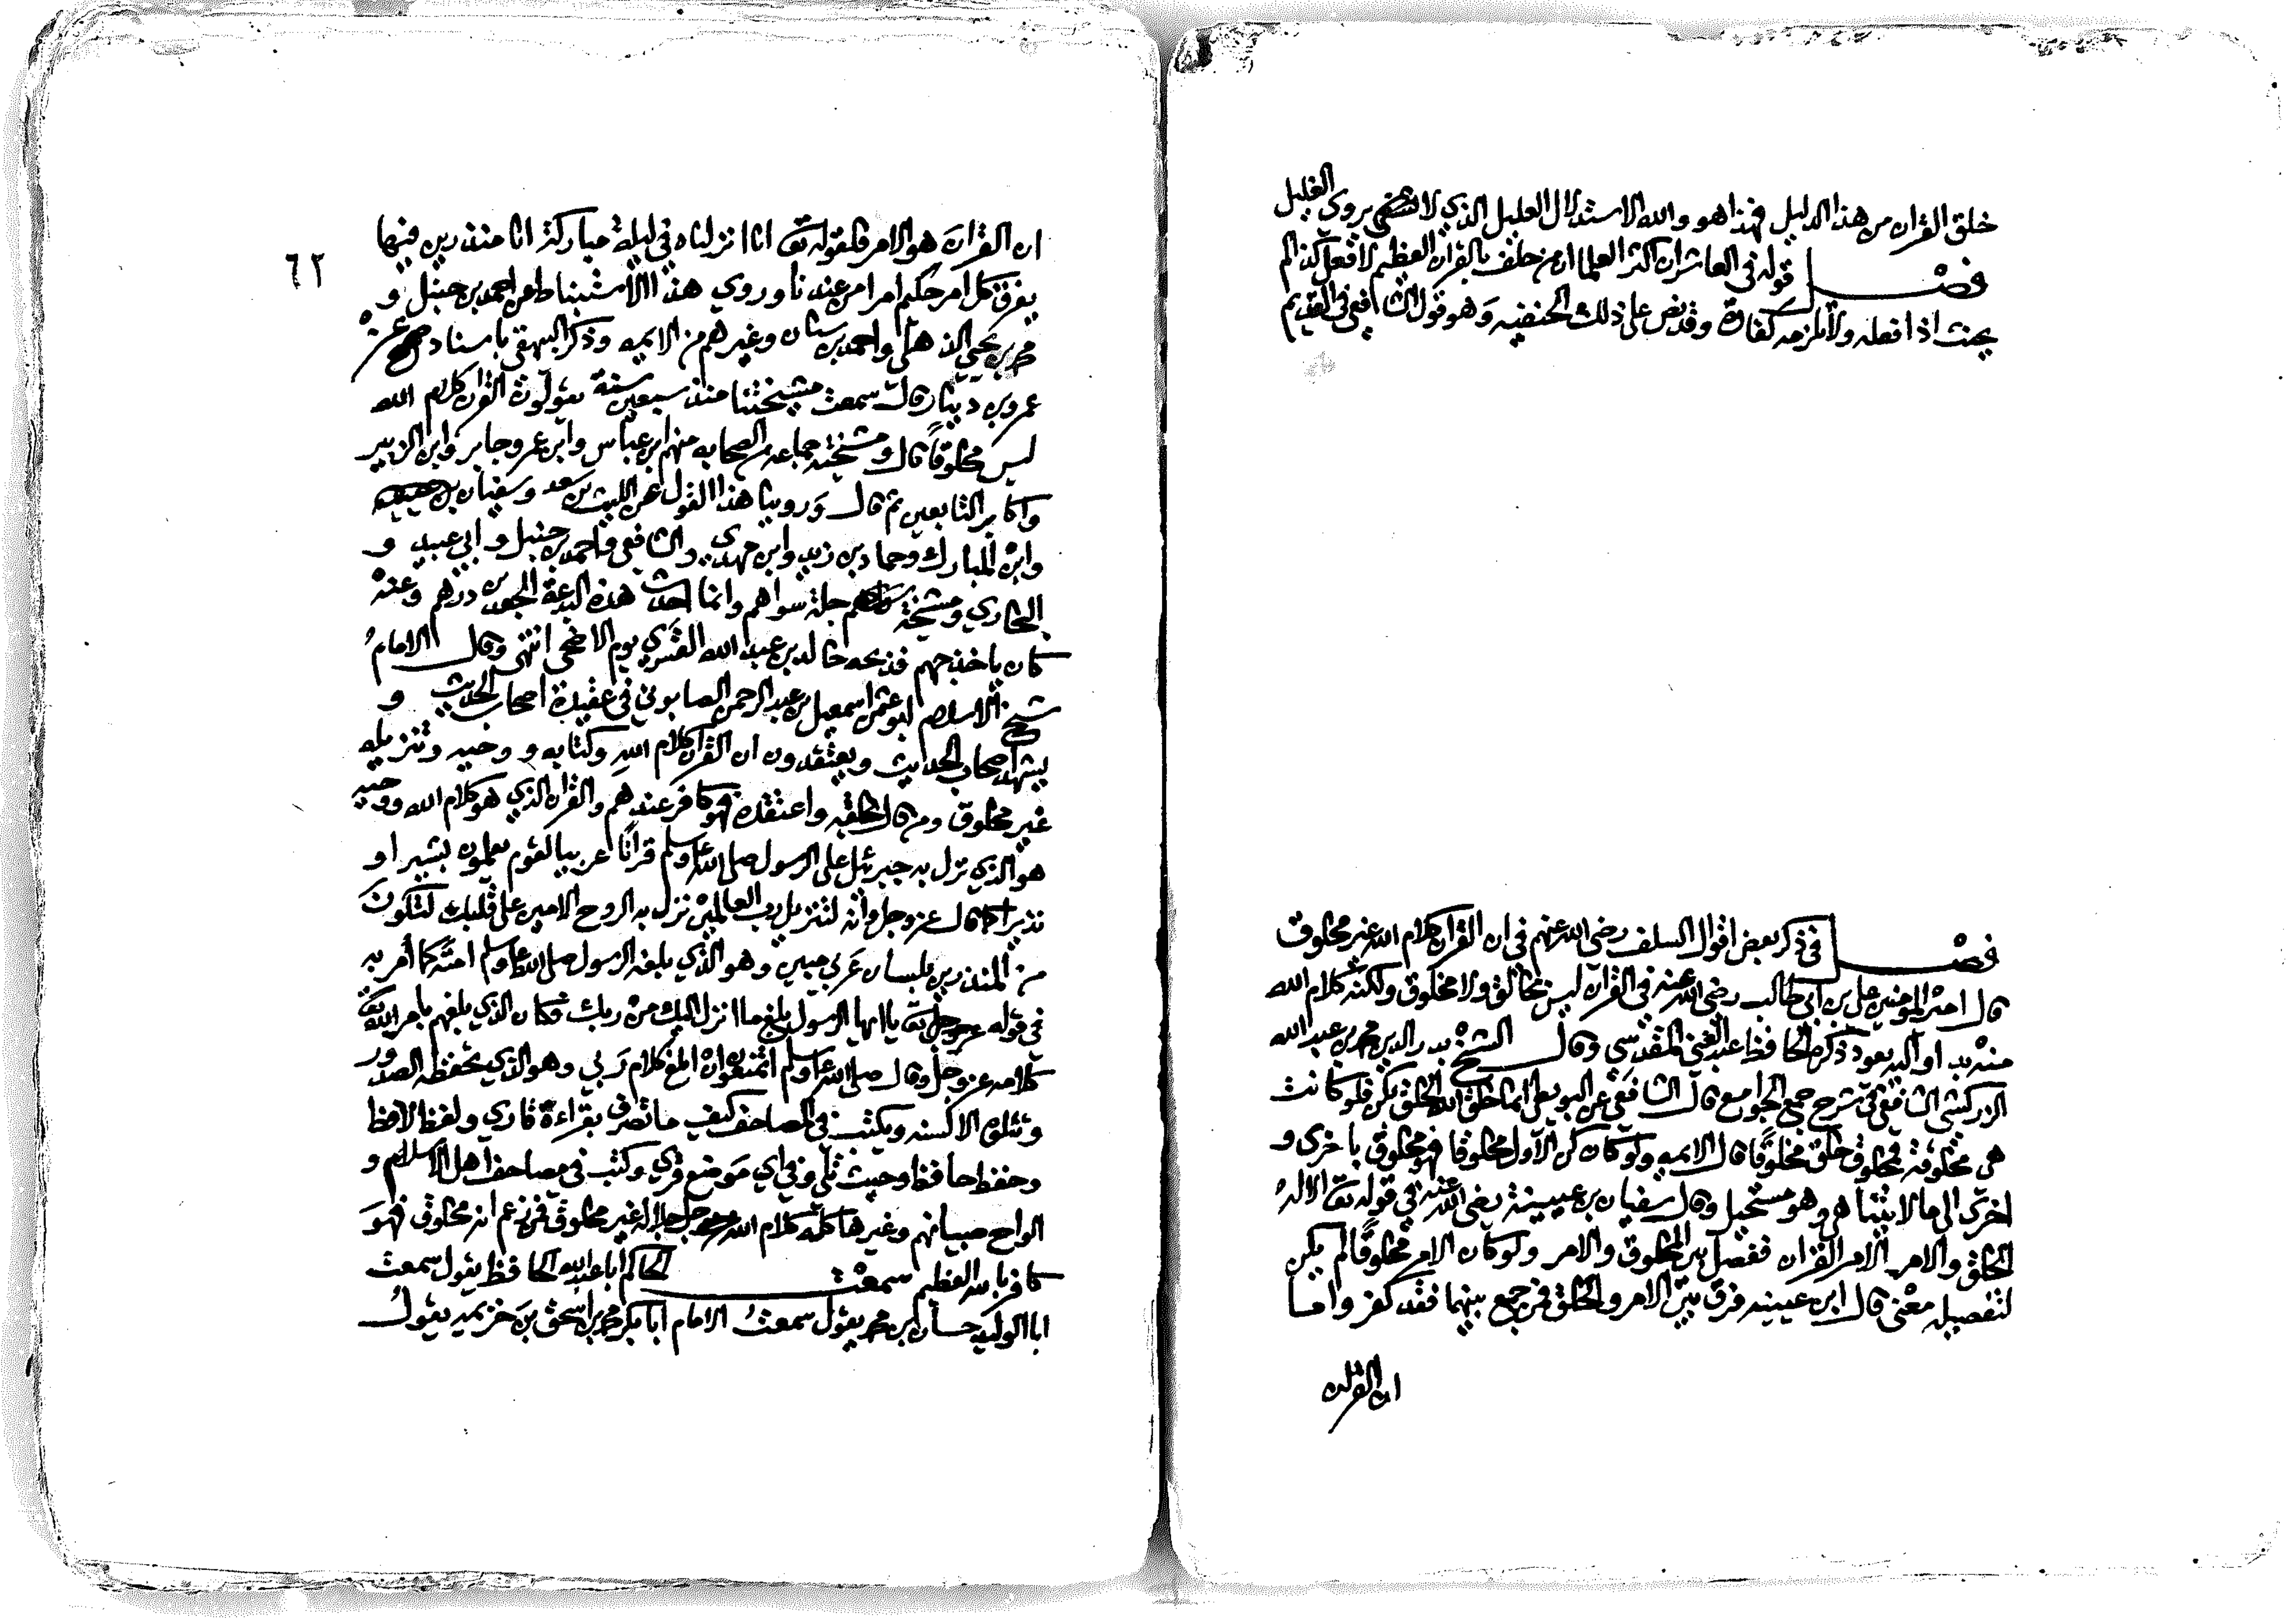 خلق القران من هذا الدليل فهذا هو والله الاستدلال العليل الذي لا يروي الغليل
فصل قوله في العاشر ان اكثر العلما ان من حلف بالقران العظيم لا فعل كذا لم
يحنث اذا فعله ولا تلزمه كفارة وقد نص على ذلك الحنفيه وهو قول الشافعي في القديم
فصل في ذكر بعض اقوال السلف رضي الله عنهم في ان القران كلام الله غير مخلوق
قال امير المومنين علي بن ابي طالب رضي الله عنه في القران ليس بخالق ولا مخلوق ولكنه كلام الله
منه بدا واليه يعود ذكره الحافظ عبد الغني المقدسي وقال الشيخ بدر الدين محمد بن عبد الله
الزركشي الشافعي في شرح جمع الجوامع قال الشافعي عن البويطي انما خلق الله الخلق بكن فلو كانت
هي مخلوقة فمخلوق خلق مخلوقا قال الايمه ولو كان كن الاول مخلوقا فهو مخلوق باخرى و
اخرى الى ما لا يتناهى وهو مستحيل وقال سفيان بن عيينة رضي الله عنه في قوله تعالى الا له
الخلق والامر الامر القران ففصل بين المخلوق والامر ولو كان الامر مخلوقا لم يكن
لتفصيله معنى قال ابن عيينه فرق بين الامر والخلق فمن جمع بينهما فقد كفر واما
ان القران
٦٢
ان القران هو الامر فلقوله تع انا انزلناه في ليلة مباركة انا منذرين فيها
يفرق كل امر حكيم امرا من عندنا وروي هذا الاستنباط عن احمد بن حنبل و
محمد بن يحيى الذهلي واحمد بن سنان وغيرهم من الايمه وذكر البيهقي باسناد صحيح عن
عمرو بن دينار قال سمعت مشيختنا منذ سبعين سنة يقولون القران كلام الله
ليس مخلوقا قال ومشيخته جماعة من الصحابه منهم ابن عباس وابن عمر وجابر وابن الزبير
واكابر التابعين ثم قال وروينا هذا القول عن الليث بن سعد وسفيان بن عيينه
وابن المبارك وحماد بن زيد وابن مهدي والشافعي واحمد بن حنبل وابي عبيد و
البخاري ومشيخة جلة سواهم وانما احدث هذه البدعة الجعد بن درهم وعنه
كان ياخذ جهم فذبحه خالد بن عبد الله القسري يوم الاضحى انتهى وقال الامام
شيخ الاسلام ابو عثمن اسمعيل بن عبد الرحمن الصابوني في عقيدة اصحاب الحديث و
يشهد اصحاب الحديث ويعتقدون ان القران كلام الله وكتابه ووحيه وتنزيله
غير مخلوق ومن قال بخلقه واعتقده فهو كافر عندهم والقران الذي هو كلام الله ووحيه
هو الذي نزل به جبرئل على الرسول صلى الله عليه وسلم قرانا عربيا لقوم يعلمون بشيرا و
نذيرا كما قال عز وجل وانه لتنزيل رب العالمين نزل به الروح الامين على قلبك لتكون
من المنذرين بلسان عربي مبين وهو الذي بلغه الرسول صلى الله عليه وسلم امته كما امر به
في قوله تع يا ايها الرسول بلغ ما انزل اليك من ربك فكان الذي بلغهم بامر الله تع
كلامه عز وجل وقال صلى الله عليه وسلم اتمنعون ان ابلغ كلام ربي وهو الذي تحفظه الصدور
وتتلوه الالسنه ويكتب في المصاحف كيف ما تصرف بقراءة قاري ولفظ لافظ
وحفظ حافظ وحيث تلي وفي اي موضع قري وكتب في مصاحف اهل الاسلام و
الواح صبيانهم وغيرها كله كلام الله جل جلاله غير مخلوق فمن زعم انه مخلوق فهو
كافر بالله العظيم سمعت الحاكم ابا عبد الله الحافظ يقول سمعت
ابا الوليد حسان بن محمد يقول سمعت الامام ابا بكر محمد بن اسحق بن خزيمه يقول